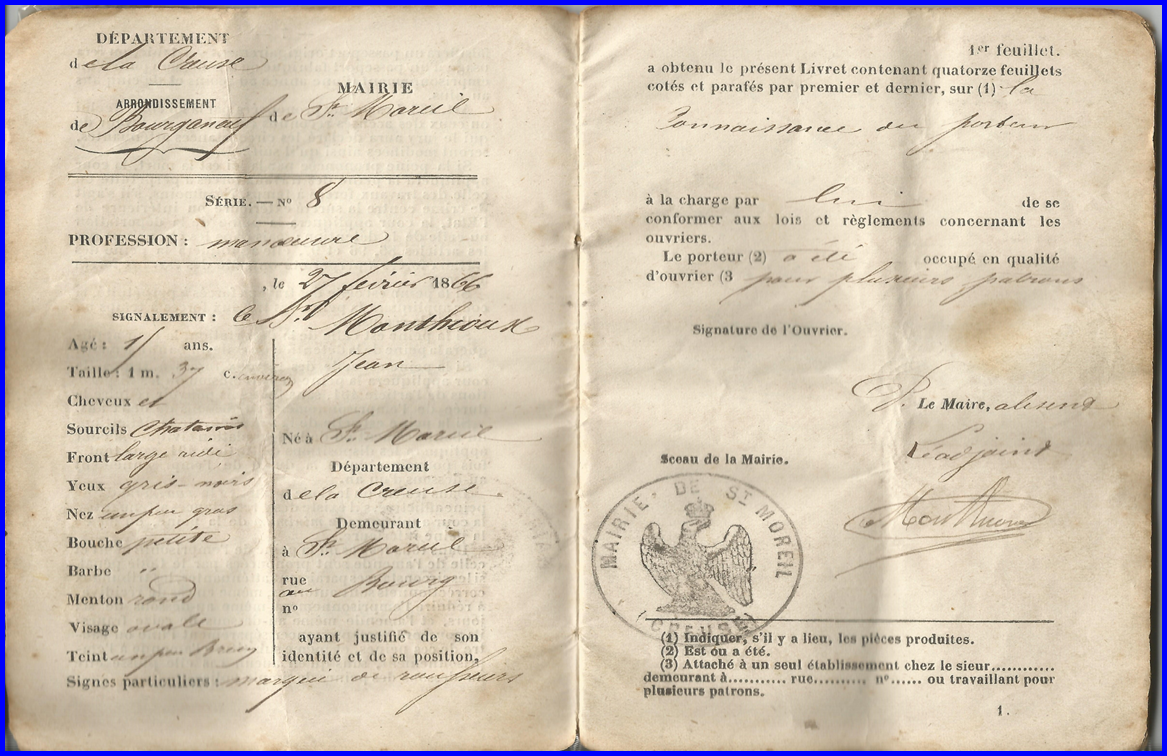 DÉPARTEMENT
de la Creuse
ARRONDISSEMENT
de Bourganeuf
MAIRIE
de St. Moreil
SÉRIE. — No 8
PROFESSION : manoeuvre
, le 27 février 1866
SIGNALEMENT : le Sr Monthioux
Jean
Agé : ans.
Taille : 1 m. 37 c.
Cheveux et
Sourcils Chatains
Front large
Yeux gris-noirs
Nez un peu gros
Bouche petite
Barbe "
Menton rond
Visage ovale
Teint un peu Brun
Signes particuliers : marqué de rousseurs
Né à St. Moreil
Département
de la Creuse
Demeurant
à St. Moreil
rue au Bourg
no
ayant justifié de son
identité et de sa position,
1er feuillet.
a obtenu le présent Livret contenant quatorze feuillets
cotés et parafés par premier et dernier, sur (1) la
Connaissance du porteur
à la charge par lui de se
conformer aux lois et règlements concernant les
ouvriers.
Le porteur (2) a été occupé en qualité
d'ouvrier (3 pour plusieurs patrons
Signature de l'Ouvrier.
P. Le Maire, absent
L'adjoint
Sceau de la Mairie.
MAIRIE DE ST MOREIL
(CREUSE)
(1) Indiquer, s'il y a lieu, les pièces produites.
(2) Est ou a été.
(3) Attaché à un seul établissement chez le sieur............
demeurant à........... rue.......... no...... ou travaillant pour
plusieurs patrons.
1.